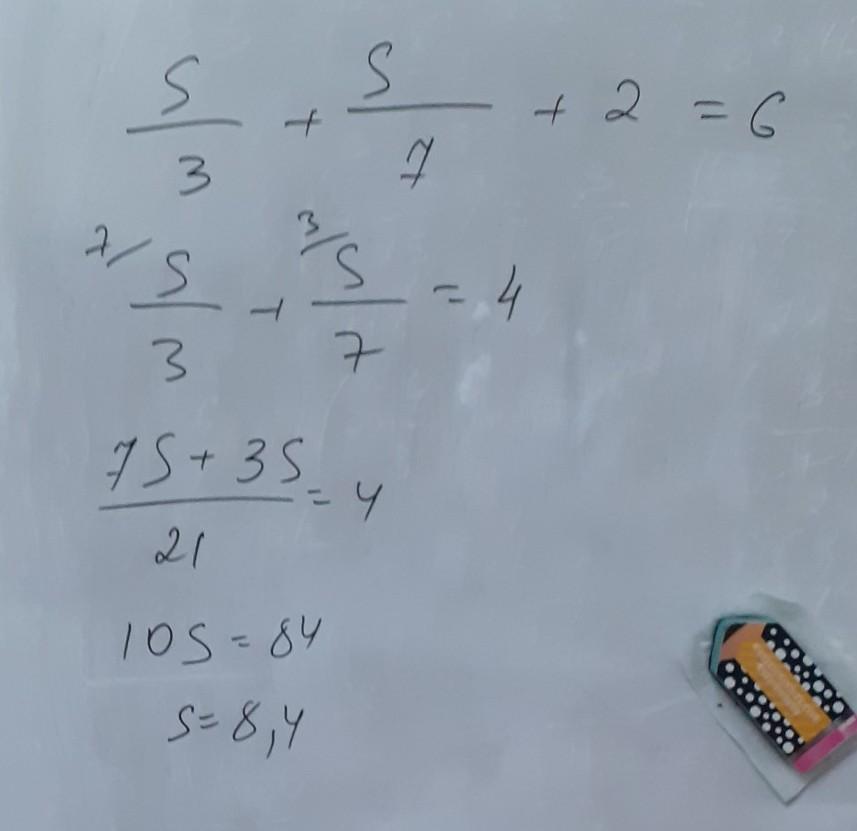 S/3 + S/7 + 2 = 6
7/ S/3 + 3/ S/7 = 4
7S + 3S / 21 = 4
10S = 84
S = 8,4